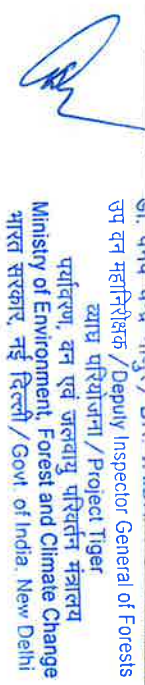 उप वन महानिरीक्षक / Deputy Inspector General of Forests
व्याघ्र परियोजना / Project Tiger
पर्यावरण, वन एवं जलवायु परिवर्तन मंत्रालय
Ministry of Environment, Forest and Climate Change
भारत सरकार, नई दिल्ली / Govt. of India, New Delhi